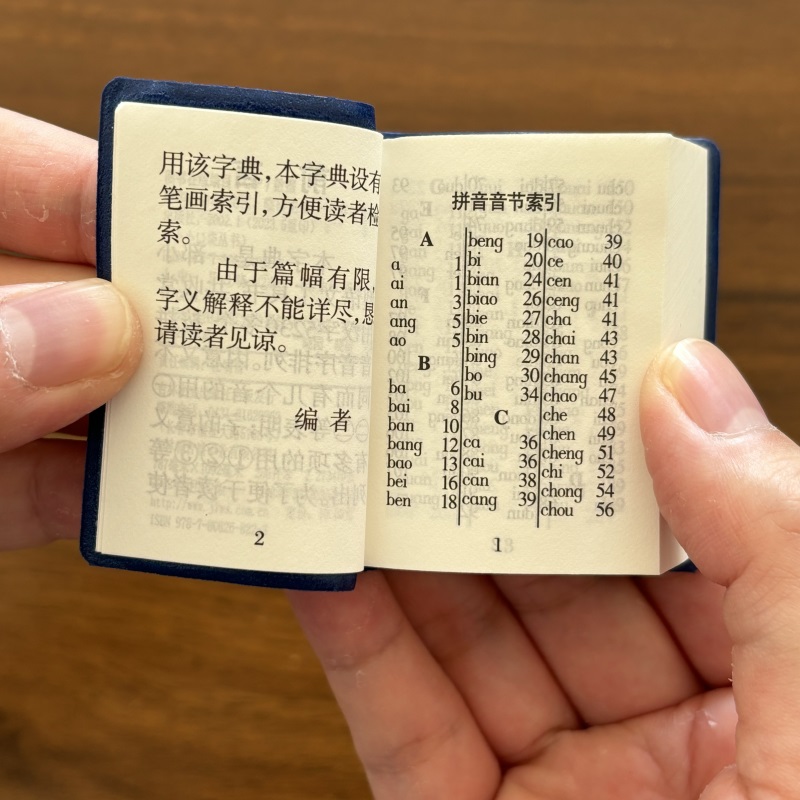 用该字典，本字典设有
笔画索引，方便读者检
索。
由于篇幅有限，
字义解释不能详尽，恳
请读者见谅。
编者
2
拼音音节索引
A
a 1
ai 1
an 3
ang 5
ao 5
B
ba 6
bai 8
ban 10
bang 12
bao 13
bei 16
ben 18
beng 19
bi 20
bian 24
biao 26
bie 27
bin 28
bing 29
bo 30
bu 34
C
ca 36
cai 36
can 38
cang 39
cao 39
ce 40
cen 41
ceng 41
cha 41
chai 43
chan 43
chang 45
chao 47
che 48
chen 49
cheng 51
chi 52
chong 54
chou 56
1